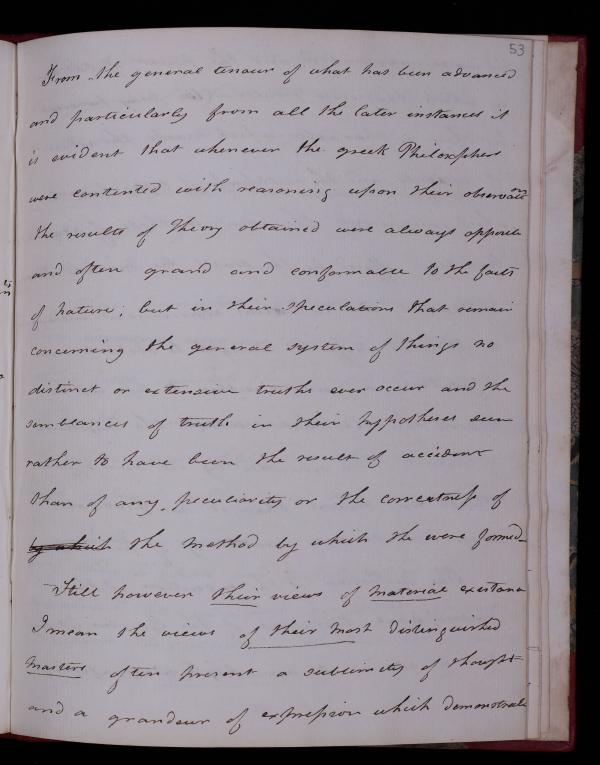 53
From the general tenour of what has been advanced
and particularly from all the later instances it
is evident that whenever the greek Philosophers
were contented with reasoning upon their observations
the results of Theory obtained were always apposite
and often grand and conformable to the facts
of nature; but in their speculations that remain
concerning the general system of things no
distinct or extensive truths ever occur and the
semblances of truth in their hypotheses seem
rather to have been the result of accident
than of any peculiarity or the correctness of
by which the method by which the were formed_
Still however their views of material existance
I mean the views of their most distinguished
Masters often present a sublimity of thought
and a grandeur of expression which demonstrate